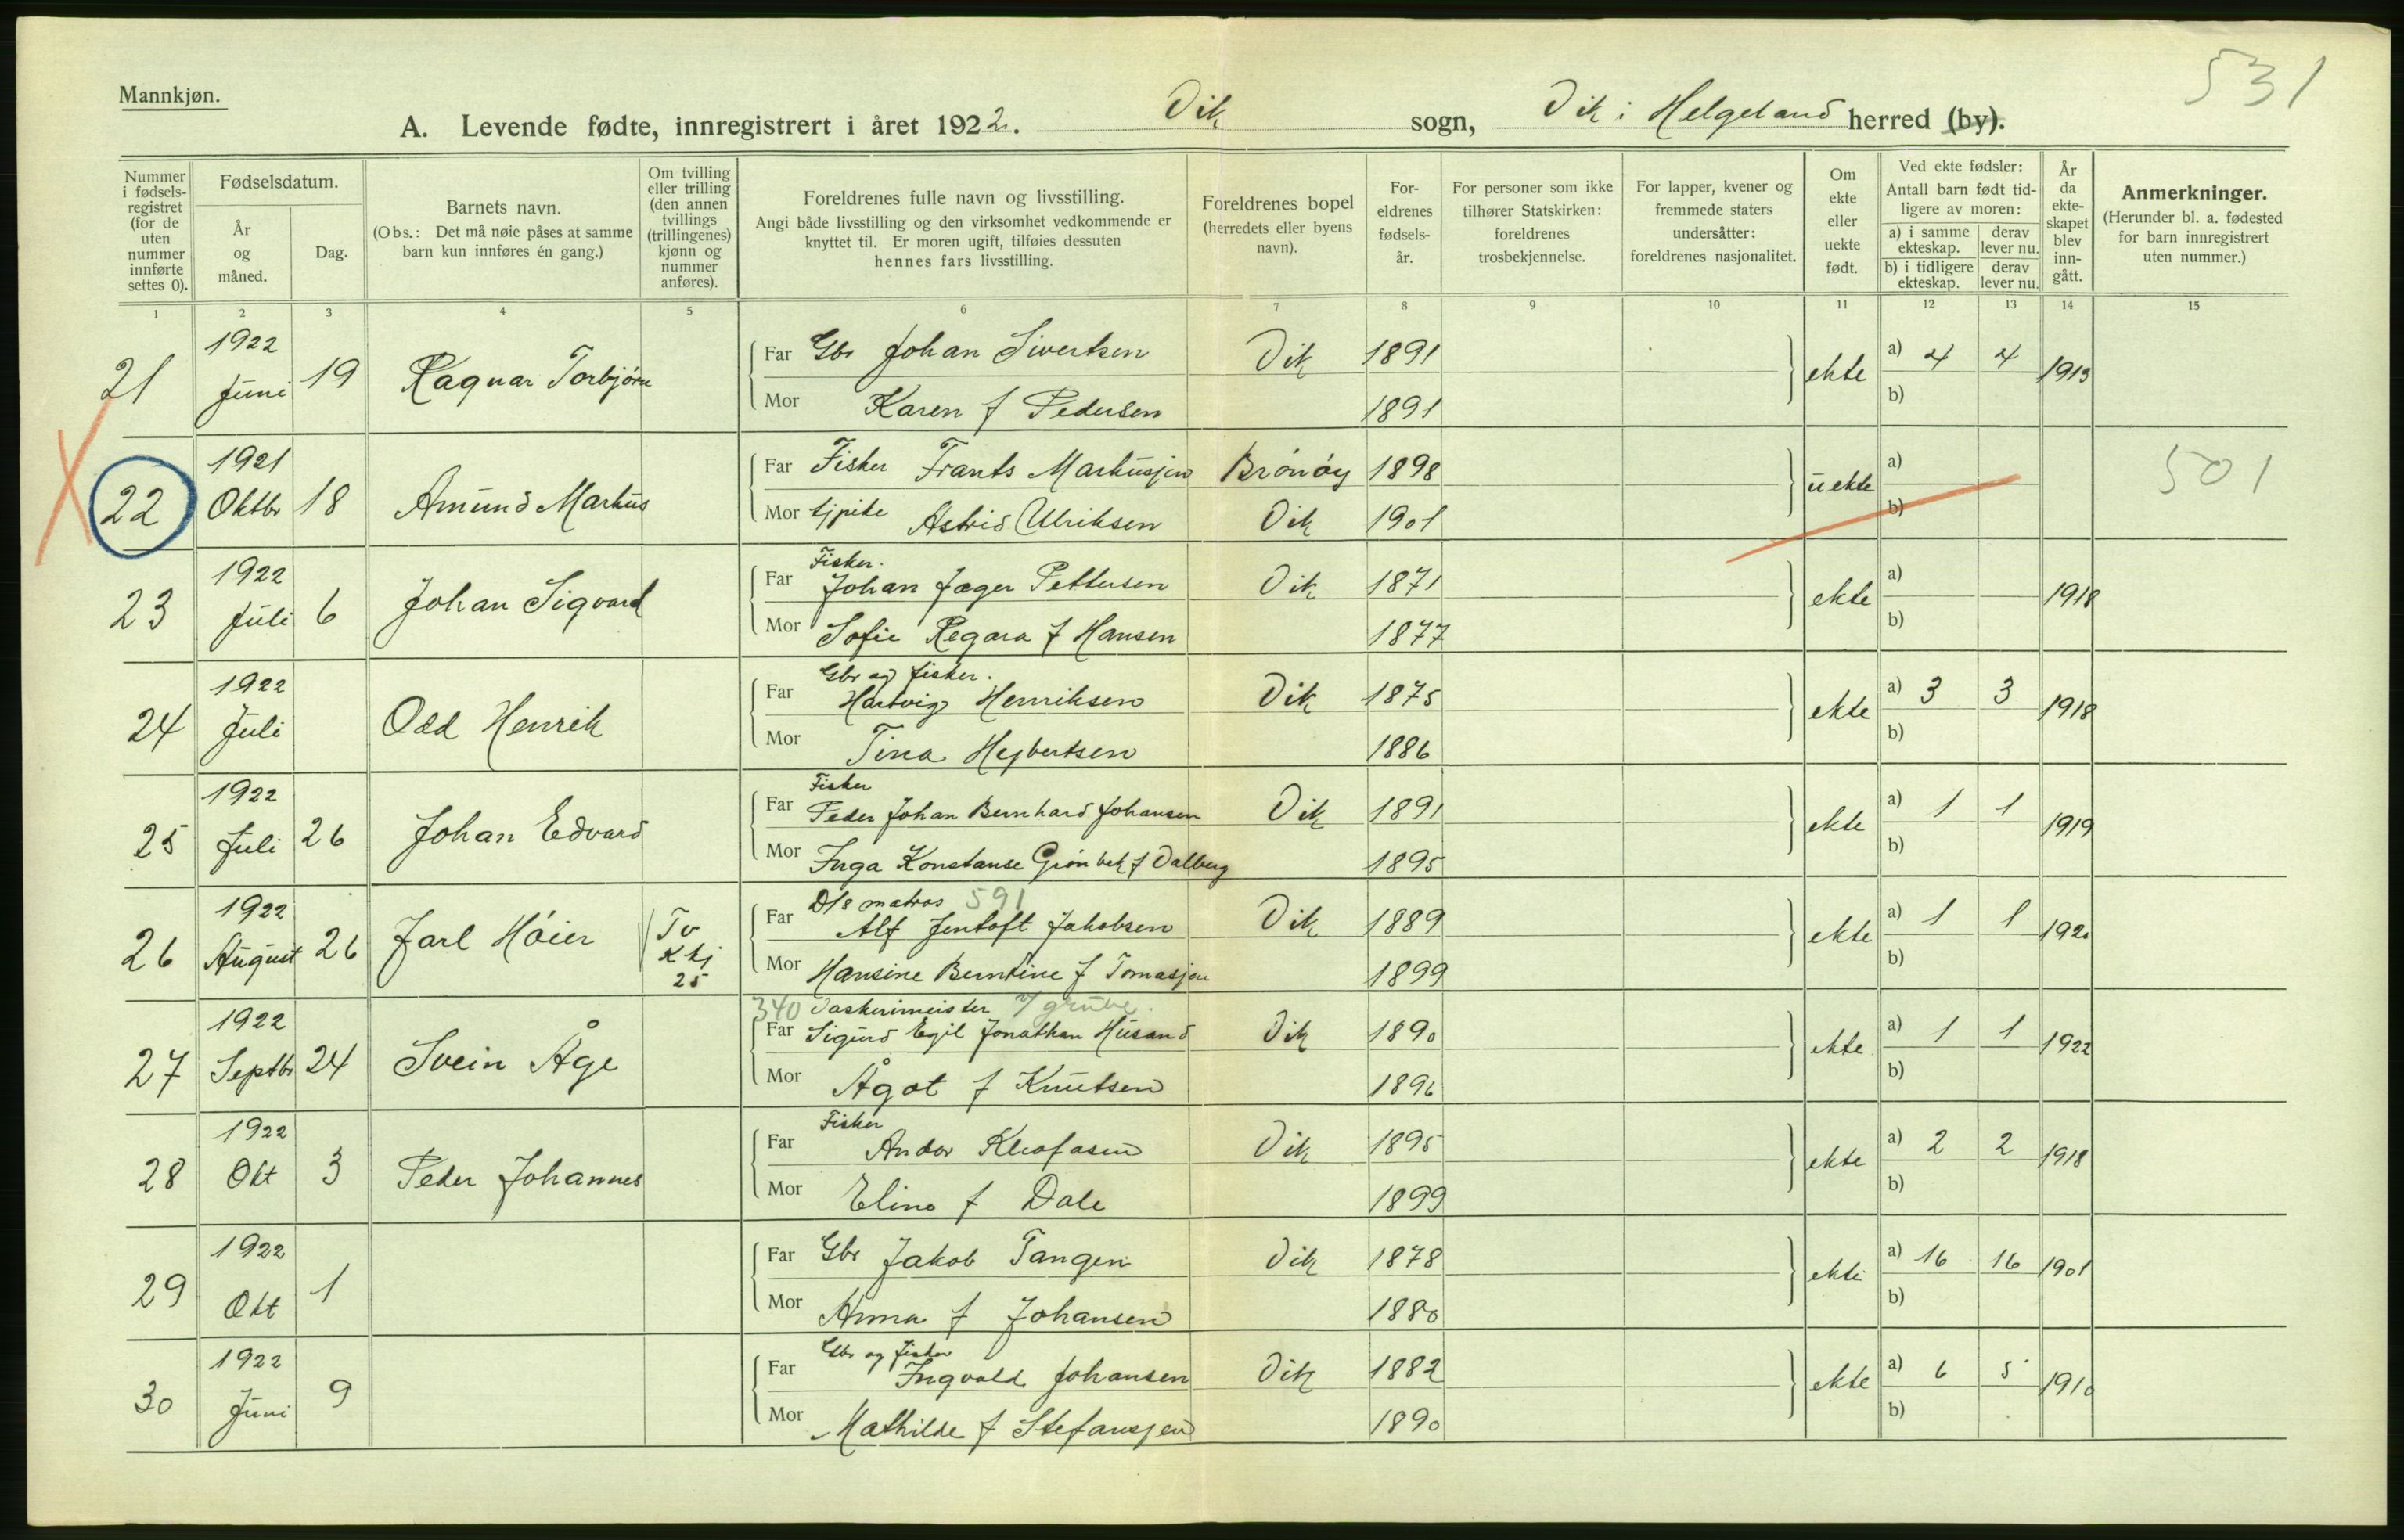 531
Mannkjøn.
A. Levende fødte, innregistrert i året 1922. Vik sogn, Vik i Helgeland herred (by).
Nummer i fødselsregistret (for de uten nummer innførte settes 0).
Fødselsdatum.
År og måned.
Dag.
Barnets navn.
(Obs.: Det må nøie påses at samme barn kun innføres én gang.)
Om tvilling eller trilling (den annen tvillings (trillingenes) kjønn og nummer anføres).
Foreldrenes fulle navn og livsstilling.
Angi både livsstilling og den virksomhet vedkommende er knyttet til. Er moren ugift, tilføies dessuten hennes fars livsstilling.
Foreldrenes bopel (herredets eller byens navn).
Foreldrenes fødselsår.
For personer som ikke tilhører Statskirken: foreldrenes trosbekjennelse.
For lapper, kvener og fremmede staters undersåtter: foreldrenes nasjonalitet.
Om ekte eller uekte født.
Ved ekte fødsler: Antall barn født tidligere av moren:
a) i samme ekteskap. derav lever nu.
b) i tidligere ekteskap. derav lever nu.
År da ekteskapet blev inngått.
Anmerkninger.
(Herunder bl. a. fødested for barn innregistrert uten nummer.)
1 2 3 4 5 6 7 8 9 10 11 12 13 14 15
21 1922 Juni 19 Ragnar Torbjørn Far Gbr Johan Sivertsen Vik 1891 ekte a) 4 4 1913
Mor Karen f Pedersen 1891 b)
22 1921 Oktbr 18 Amund Markus Far Fisker Frants Markussen Brönöy 1898 uekte a) 501
Mor tjpike Astrid Ulriksen Vik 1901 b)
23 1922 Juli 6 Johan Sigvard Far Fisker. Johan Jæger Pettersen Vik 1871 ekte a) 1918
Mor Sofie Regara f Hansen 1877 b)
24 1922 Juli Odd Henrik Far Gbr og fisker. Hartvig Henriksen Vik 1875 ekte a) 3 3 1918
Mor Tina Hejbertsen 1886 b)
25 1922 Juli 26 Johan Edvard Far Fisker Peder Johan Bernhard Johansen Vik 1891 ekte a) 1 1 1919
Mor Inga Konstanse Grönbek f Dalberg 1895 b)
26 1922 August 26 Jarl Höier Tv Kkj 25 Far D/s matros 591 Alf Jentoft Jakobsen Vik 1889 ekte a) 1 1 1920
Mor Hansine Berntine f Tomassen 1899 b)
27 1922 Septbr 24 Svein Åge 340 Vaskerimeister v/ grube. Far Sigurd Egil Jonathan Husand Vik 1890 ekte a) 1 1 1922
Mor Ågot f Knutsen 1896 b)
28 1922 Okt 3 Peder Johannes Far Fisker Andor Kleofasen Vik 1895 ekte a) 2 2 1918
Mor Elina f Dale 1899 b)
29 1922 Okt 1 Far Gbr Jakob Tangen Vik 1878 ekte a) 16 16 1901
Mor Anna f Johansen 1880 b)
30 1922 Juni 9 Far Gbr og fisker Ingvald Johansen Vik 1882 ekte a) 6 5 1910
Mor Mathilde f Stefanssen 1890 b)